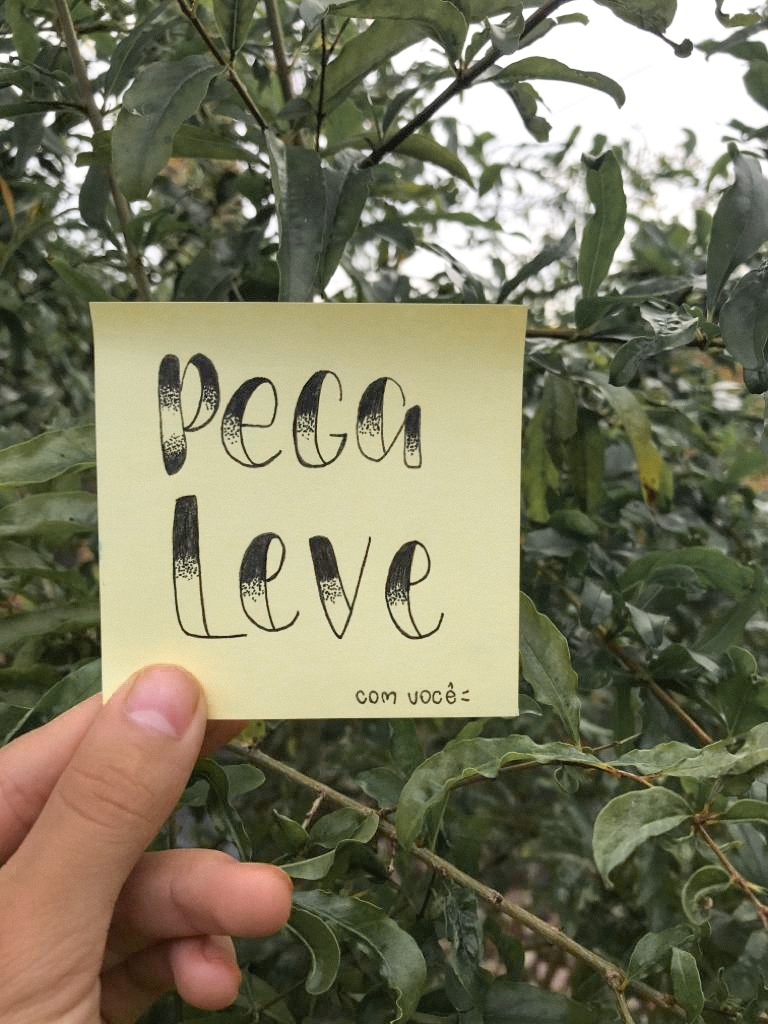 Pega
Leve
com você: